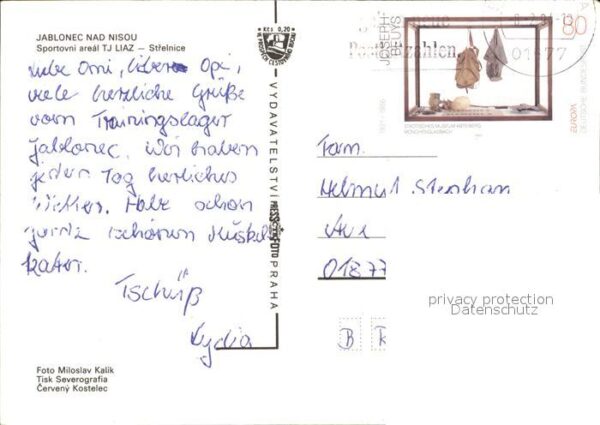 JABLONEC NAD NISOU
Sportovní areál TJ LIAZ — Střelnice
Liebe Omi, lieber Opi,
viele herzliche Grüße
vom Trainingslager
Jablonec. Wir haben
jeden Tag herrliches
Wetter. Habe schon
ganz schönen Muskel-
kater.
Tschüß
Lydia
Foto Miloslav Kalík
Tisk Severografia
Červený Kostelec
Kčs 0,20
VYDAVATELSTVÍ
PRESSFOTO
PRAHA
JOSEPH
BEUYS
80
01877
EUROPA
DEUTSCHE BUNDESPOST
STÄDTISCHES MUSEUM ABTEIBERG
MÖNCHENGLADBACH
Fam.
Helmut
01877
B
privacy protection
Datenschutz